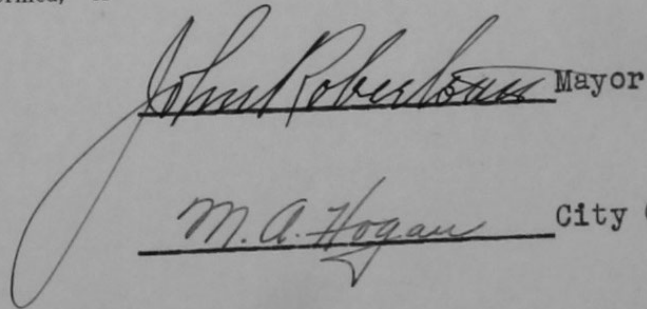 John Robertson Mayor
M. A. Hogan City